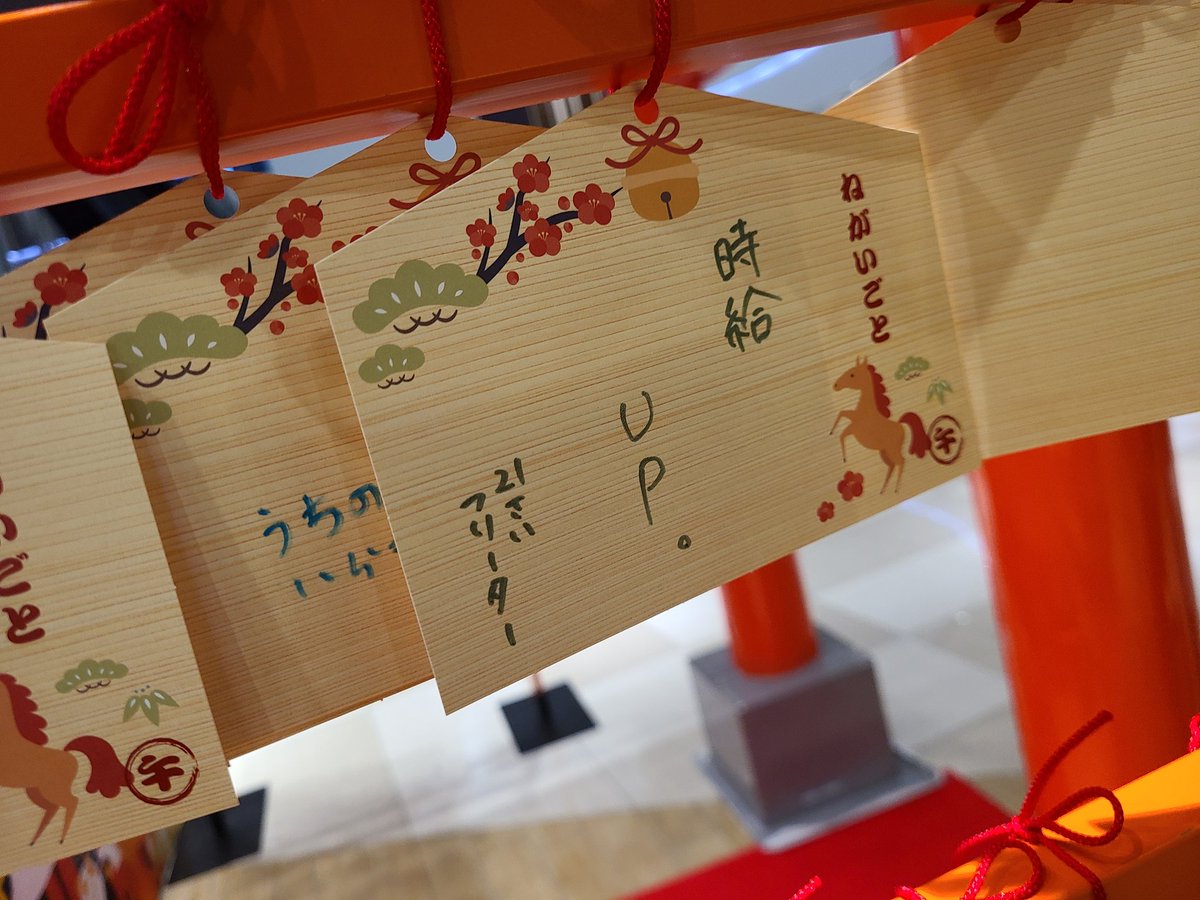 ねがいごと
午
時給
UP。
21さい
フリーター
うちの
ごと
午